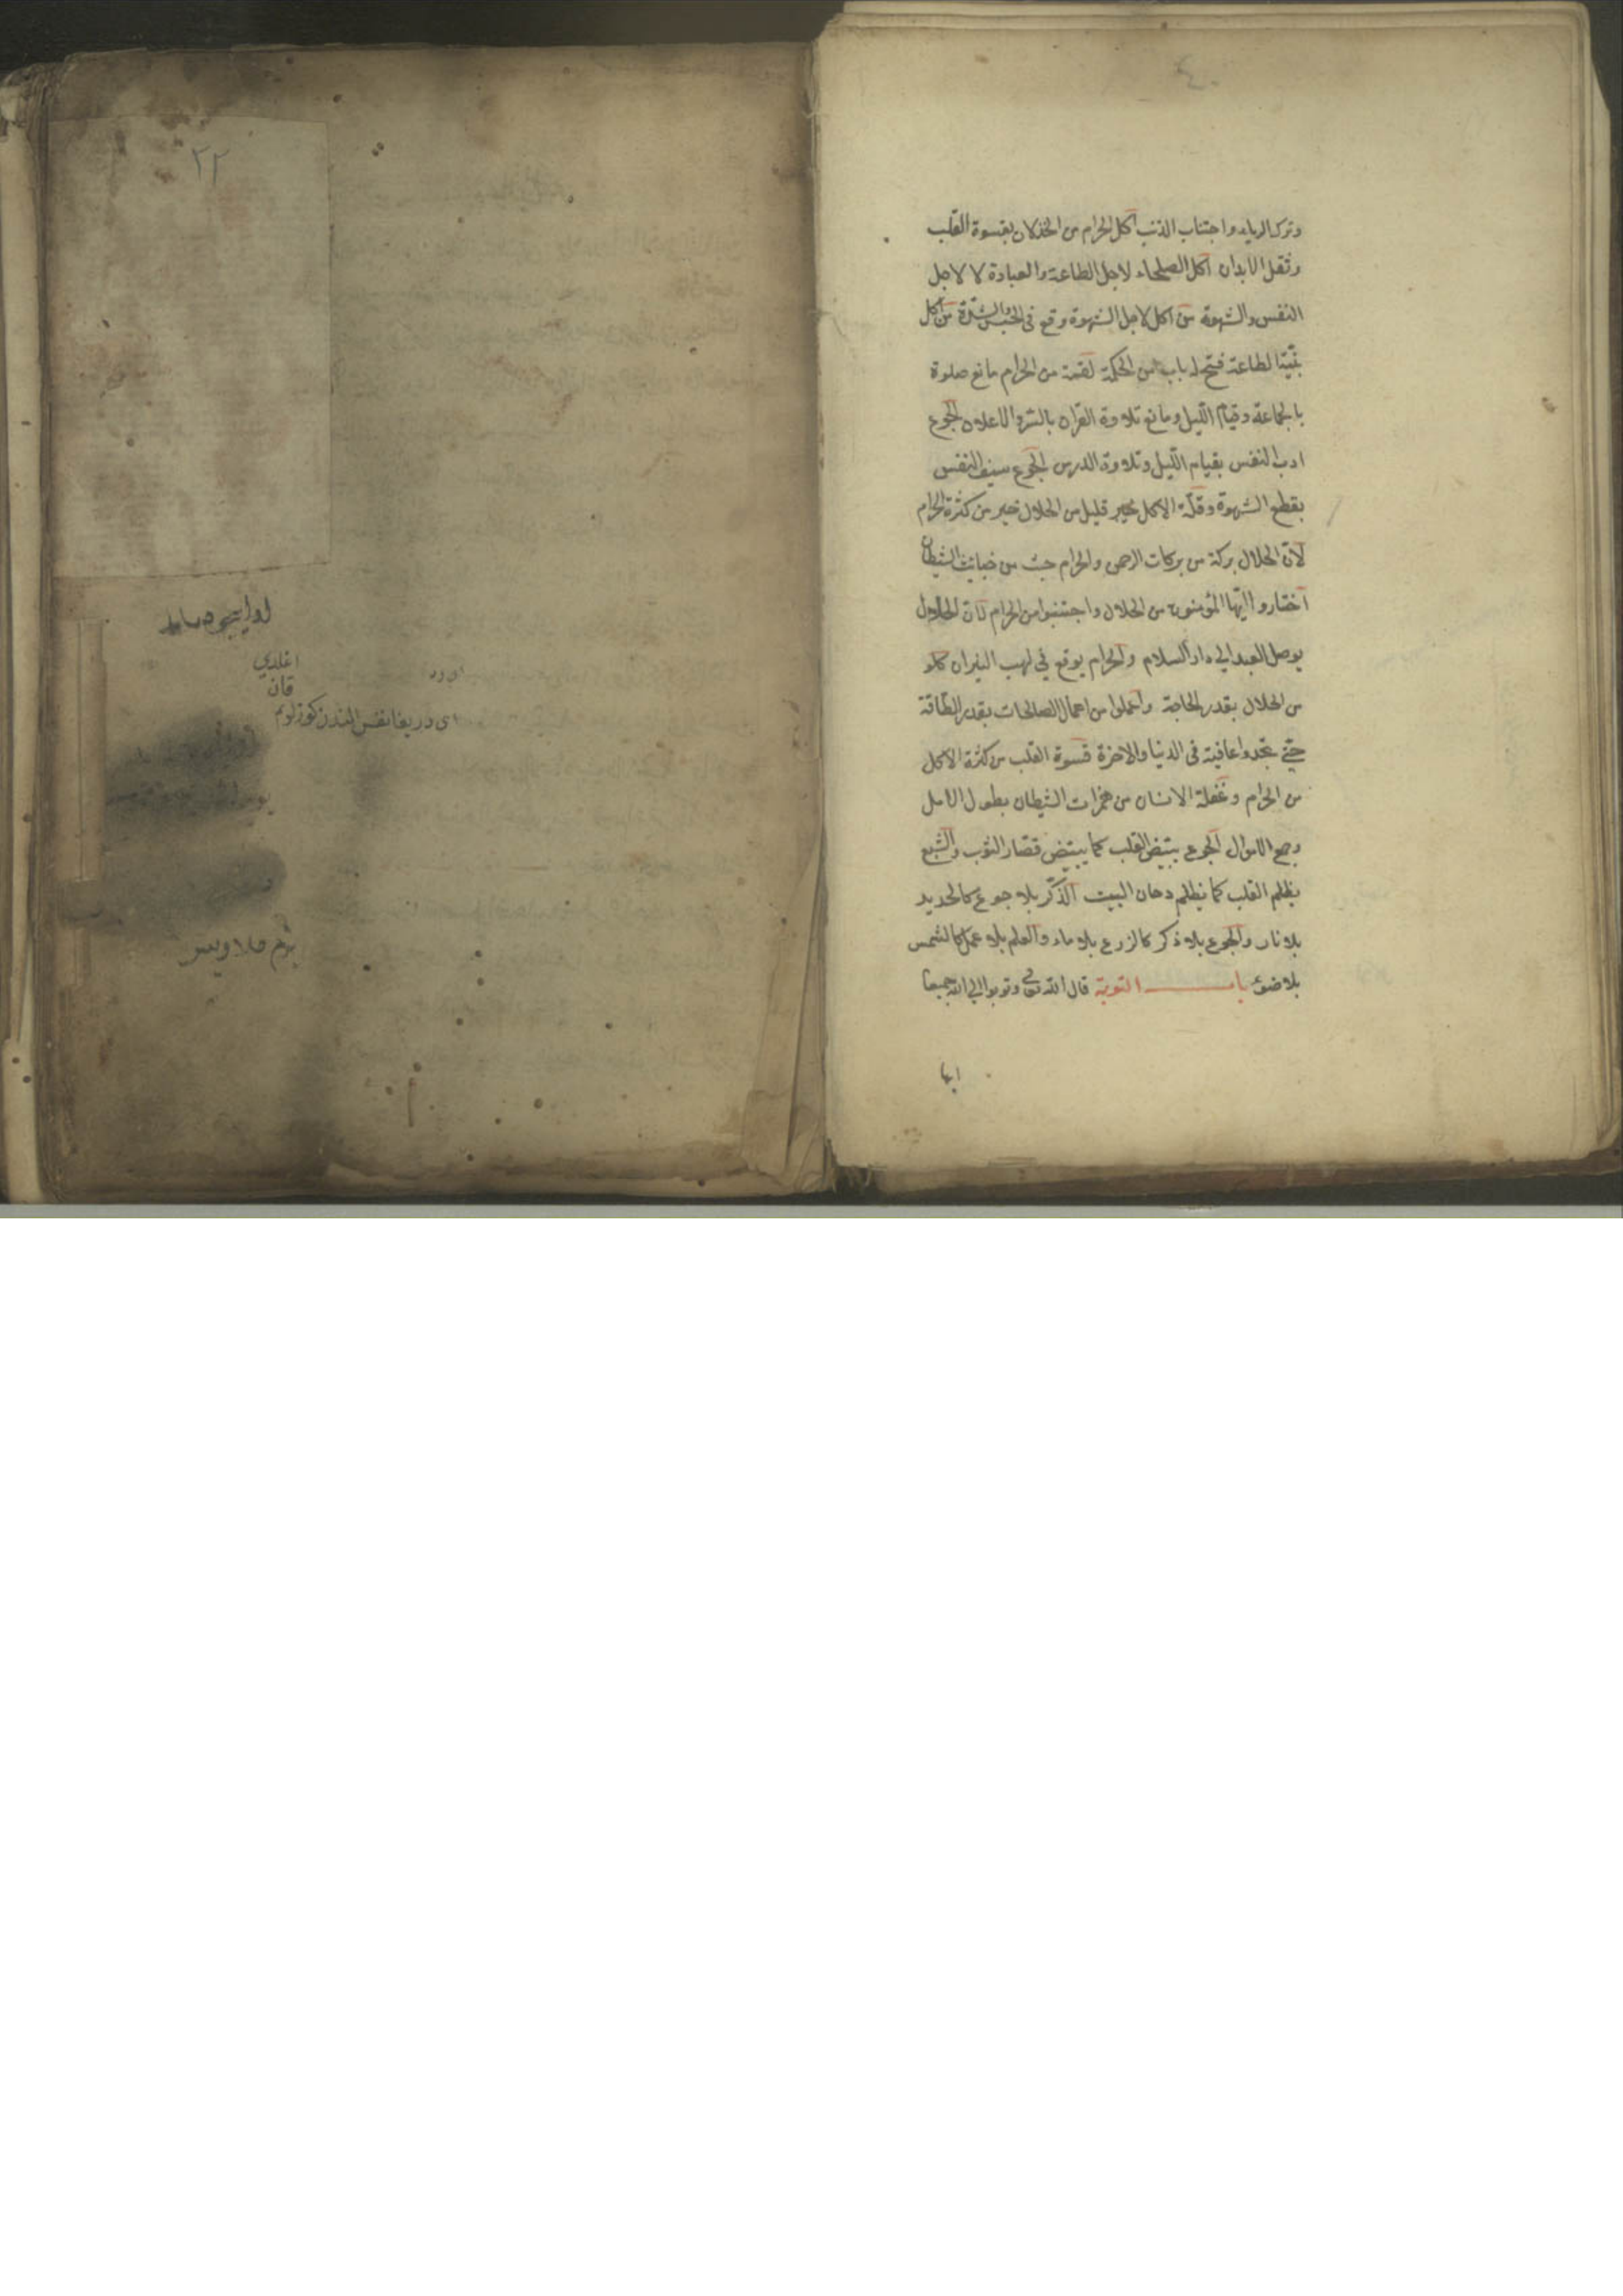 وترك الرياء واجتناب الذنب اكل الحرام من الخذلان بقسوة القلب
وثقل الابدان اكل الصلحاء لاجل الطاعة والعبادة لا لاجل
النفس والشهوة من اكل لاجل الشهوة وقع فى الحبس والشدة من اكل
بنية الطاعة فتح له باب من الحكمة لقمة من الحرام مانع صلوة
بالجماعة وقيام الليل ومانع تلاوة القران بالسر والاعلان الجوع
ادب النفس بقيام الليل وتلاوة الدرس الجوع سيف النفس
بقطع الشهوة وقلة الاكل خير قليل من الحلال خير من كثرة الحرام
لان الحلال بركة من بركات الرحمن والحرام خبث من خبائث الشيطان
اختاروا ايها المؤمنون من الحلال واجتنبوا من الحرام لان الحلال
يوصل العبد الي دار السلام والحرام يوقع في لهب النيران كلوا
من الحلال بقدر الحاجة واعملوا من اعمال الصالحات بقدر الطاقة
حتي تجدوا عافية فى الدنيا والاخرة قسوة القلب من كثرة الاكل
من الحرام وغفلة الانسان من همزات الشيطان بطول الامل
وجمع الاموال الجوع يبيض القلب كما يبيض قصار الثوب والشبع
يظلم القلب كما يظلم دخان البيت الذكر بلا جوع كالحديد
بلا نار والجوع بلا ذكر كالزرع بلا ماء والعلم بلا عمل كالشمس
بلا ضوء باب التوبة قال الله تعالي وتوبوا الي الله جميعا
ايها
٢٢
اغلدي
قان
اى دريغا نفس الندن كوزلوم